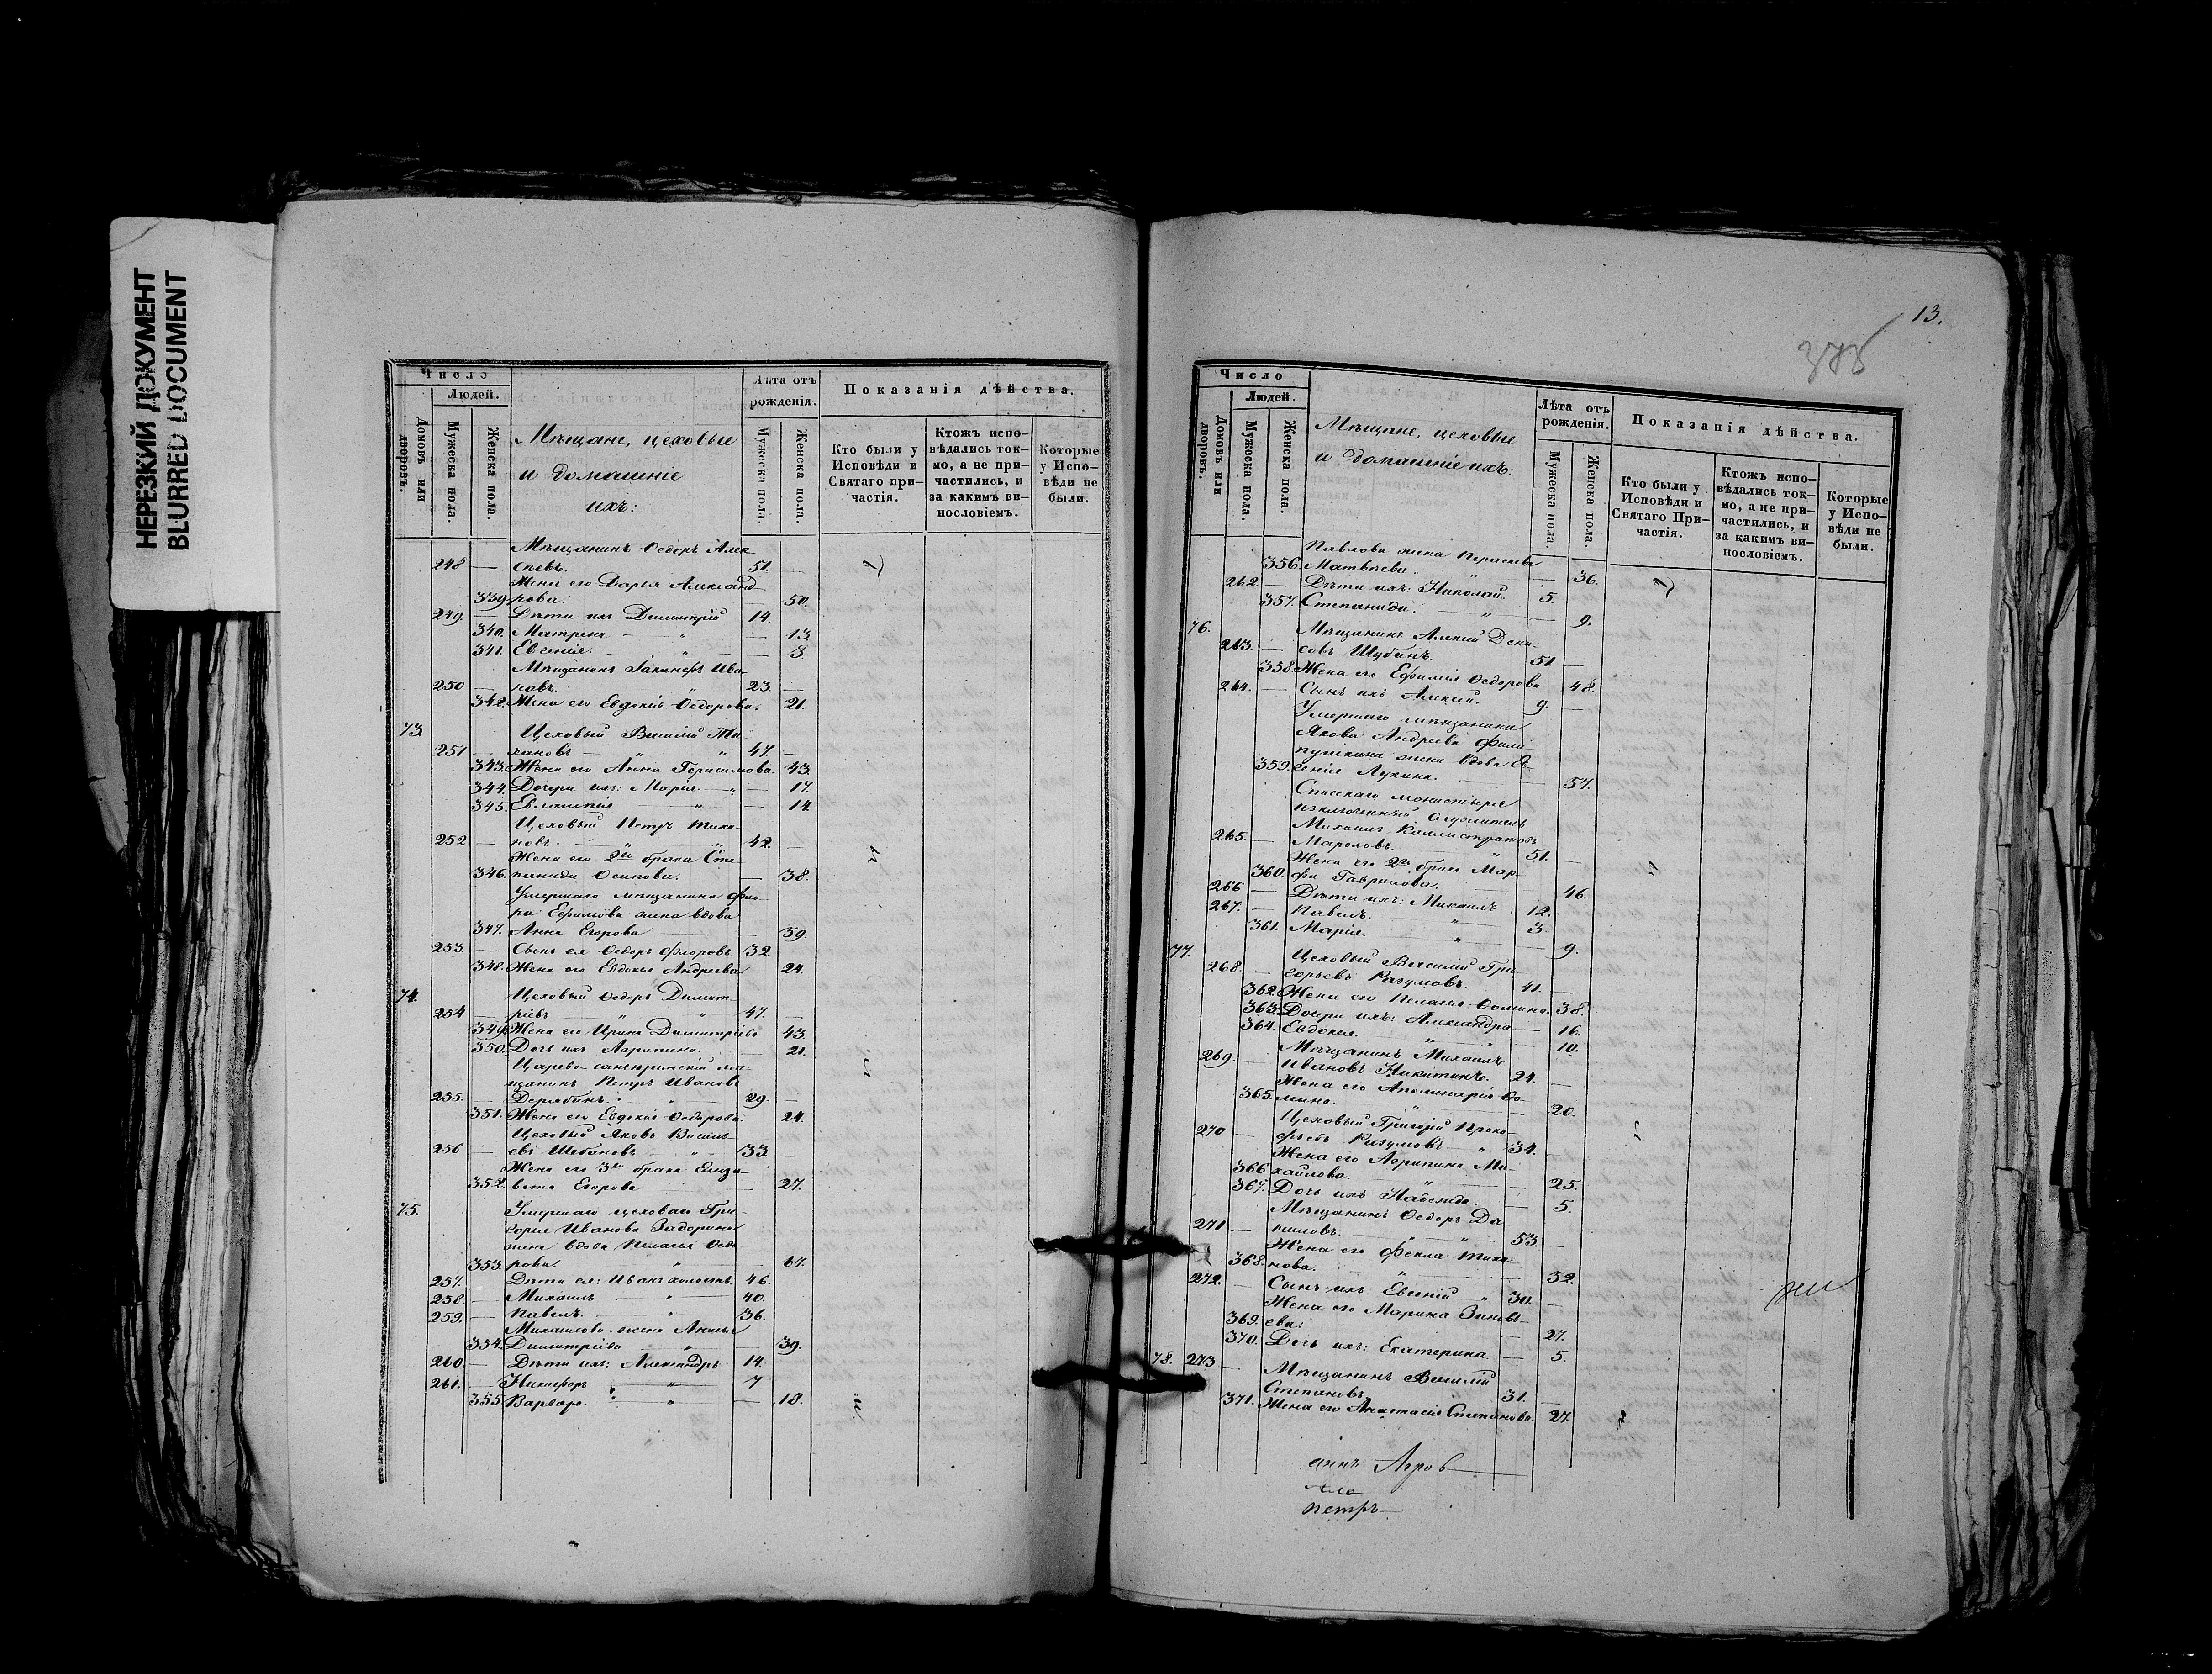 НЕРЕЗКИЙ ДОКУМЕНТ
BLURRED DOCUMENT
Число
Людей.
Домовъ или дворовъ.
Мужеска пола.
Женска пола.
Мѣщане, цеховые
и домашніе
ихъ:
Лѣта отъ рожденія.
Мужеска пола.
Женска пола.
Показанія дѣйства.
Кто были у Исповѣди и Святаго причастія.
Ктожъ исповѣдались токмо, а не причастились, и за какимъ винословіемъ.
Которые у Исповѣди не были.
Мѣщанинъ Ѳедоръ Алек
248 — сѣевъ. 51. —
Жена его Дарья Александ
339. рова. — 50.
249. — Дѣти ихъ Димитрій 14.
340. Матрена — " — 13.
341. Евгенія. — " — 3.
Мѣщанинъ Іакинѳъ Ива-
250 — новъ. " 23. —
342. Жена его Евдокія Ѳедорова. 21.
73. Цеховый Василій Ти-
251 — хановъ — " " 47. —
343. Жена его Анна Герасимова. 43.
344. Дочери ихъ: Марія — " — 17.
345. Евлампія — " — 14.
Цеховый Петръ Тиха-
252 — новъ. " " 42. —
Жена его 2го брака Сте-
346. панида Осипова. — 38.
Умершаго мѣщанина Фло-
ра Ефимова жена вдова
347. Анна Егорова — — 59.
253. — Сынъ ея Ѳедоръ Флоровъ. 32
348. Жена его Евдокія Андреева. 24.
74. Цеховый Ѳедоръ Димит-
254 — ріевъ — " " 47. —
349. Жена его Ирина Димитріева 43.
350. Дочь ихъ Агрипина. — 21.
Царево-санчурскій мѣ-
щанинъ Петръ Ивановъ
255. — Дерябинъ. " 29. —
351. Жена его Евдокія Ѳедорова. 24.
Цеховый Яковъ Василь-
256 — евъ Шебановъ — " — 33. —
Жена его 3го брака Елиза-
352. вета Егорова — 27.
75. Умершаго цеховаго Гри-
горія Иванова Задорина
жена вдова Пелагія Ѳедо
353. рова. — " — 67.
257. — Дѣти ея: Иванъ холостъ. 46.
258. — Михаилъ — " — 40.
259. — Павелъ. — " 36.
Михаилова жена Акилина
354. Димитріева — " — 39.
260. — Дѣти ихъ: Александръ 14.
261. — Никифоръ — " — 7
355. Варвара. — " — 18.
13.
375
Число
Людей.
Домовъ или дворовъ.
Мужеска пола.
Женска пола.
Мѣщане, цеховые
и домашніе ихъ:
Лѣта отъ рожденія.
Мужеска пола.
Женска пола.
Показанія дѣйства.
Кто были у Исповѣди и Святаго Причастія.
Ктожъ исповѣдались токмо, а не причастились, и за какимъ винословіемъ.
Которые у Исповѣди не были.
Павлова жена Парасковья
356. Матвѣева. " — 36.
262. — Дѣти ихъ: Николай 5.
357. Степанида. — " — 9.
76. Мѣщанинъ Алексій Дени-
263. — совъ Шубинъ. 51 —
358. Жена его Ефимія Ѳедорова 48.
264. — Сынъ ихъ Алексій. 9. —
Умершаго мѣщанина
Якова Андреева
жена вдова Ев-
359. генія Лукина. — 57.
Спасскаго монастыря
Михаилъ Каллистратовъ
265. — " 51. —
Жена его 2го брака Мар-
360. фа Гаврилова. — 46.
266 — Дѣти ихъ: Михаилъ 12.
267. — Павелъ. " 3
361. Марія. — " — 9.
77. Цеховый Василій Гри-
268. — горьевъ Разумовъ. 41. —
362. Жена его Пелагія Ѳомина. 38.
363. Дочери ихъ: Александра — 16.
364. Евдокія. " — 10.
Мѣщанинъ Михаилъ
269. — Ивановъ Никитинъ. 24. —
Жена его Аполинарія Ѳо-
365. мина. " — 20.
Цеховый Григорій Проко-
270 — фьевъ Разумовъ — " 34. —
Жена его Агрипина Ми-
366. хайлова. " — 25.
367. Дочь ихъ Надежда. — 5.
Мѣщанинъ Ѳедоръ Да-
271 — ниловъ. " " 53. —
Жена его Фекла Тиха-
368. нова. — 52.
272. — Сынъ ихъ Евгеній " 30. —
Жена его Марина Зиновь-
369. ева. — 27.
370. Дочь ихъ: Екатерина. — 5.
78. 273 — Мѣщанинъ Василій
Степановъ. 31. —
371. Жена его Анастасія Степанова. 27.
Петръ